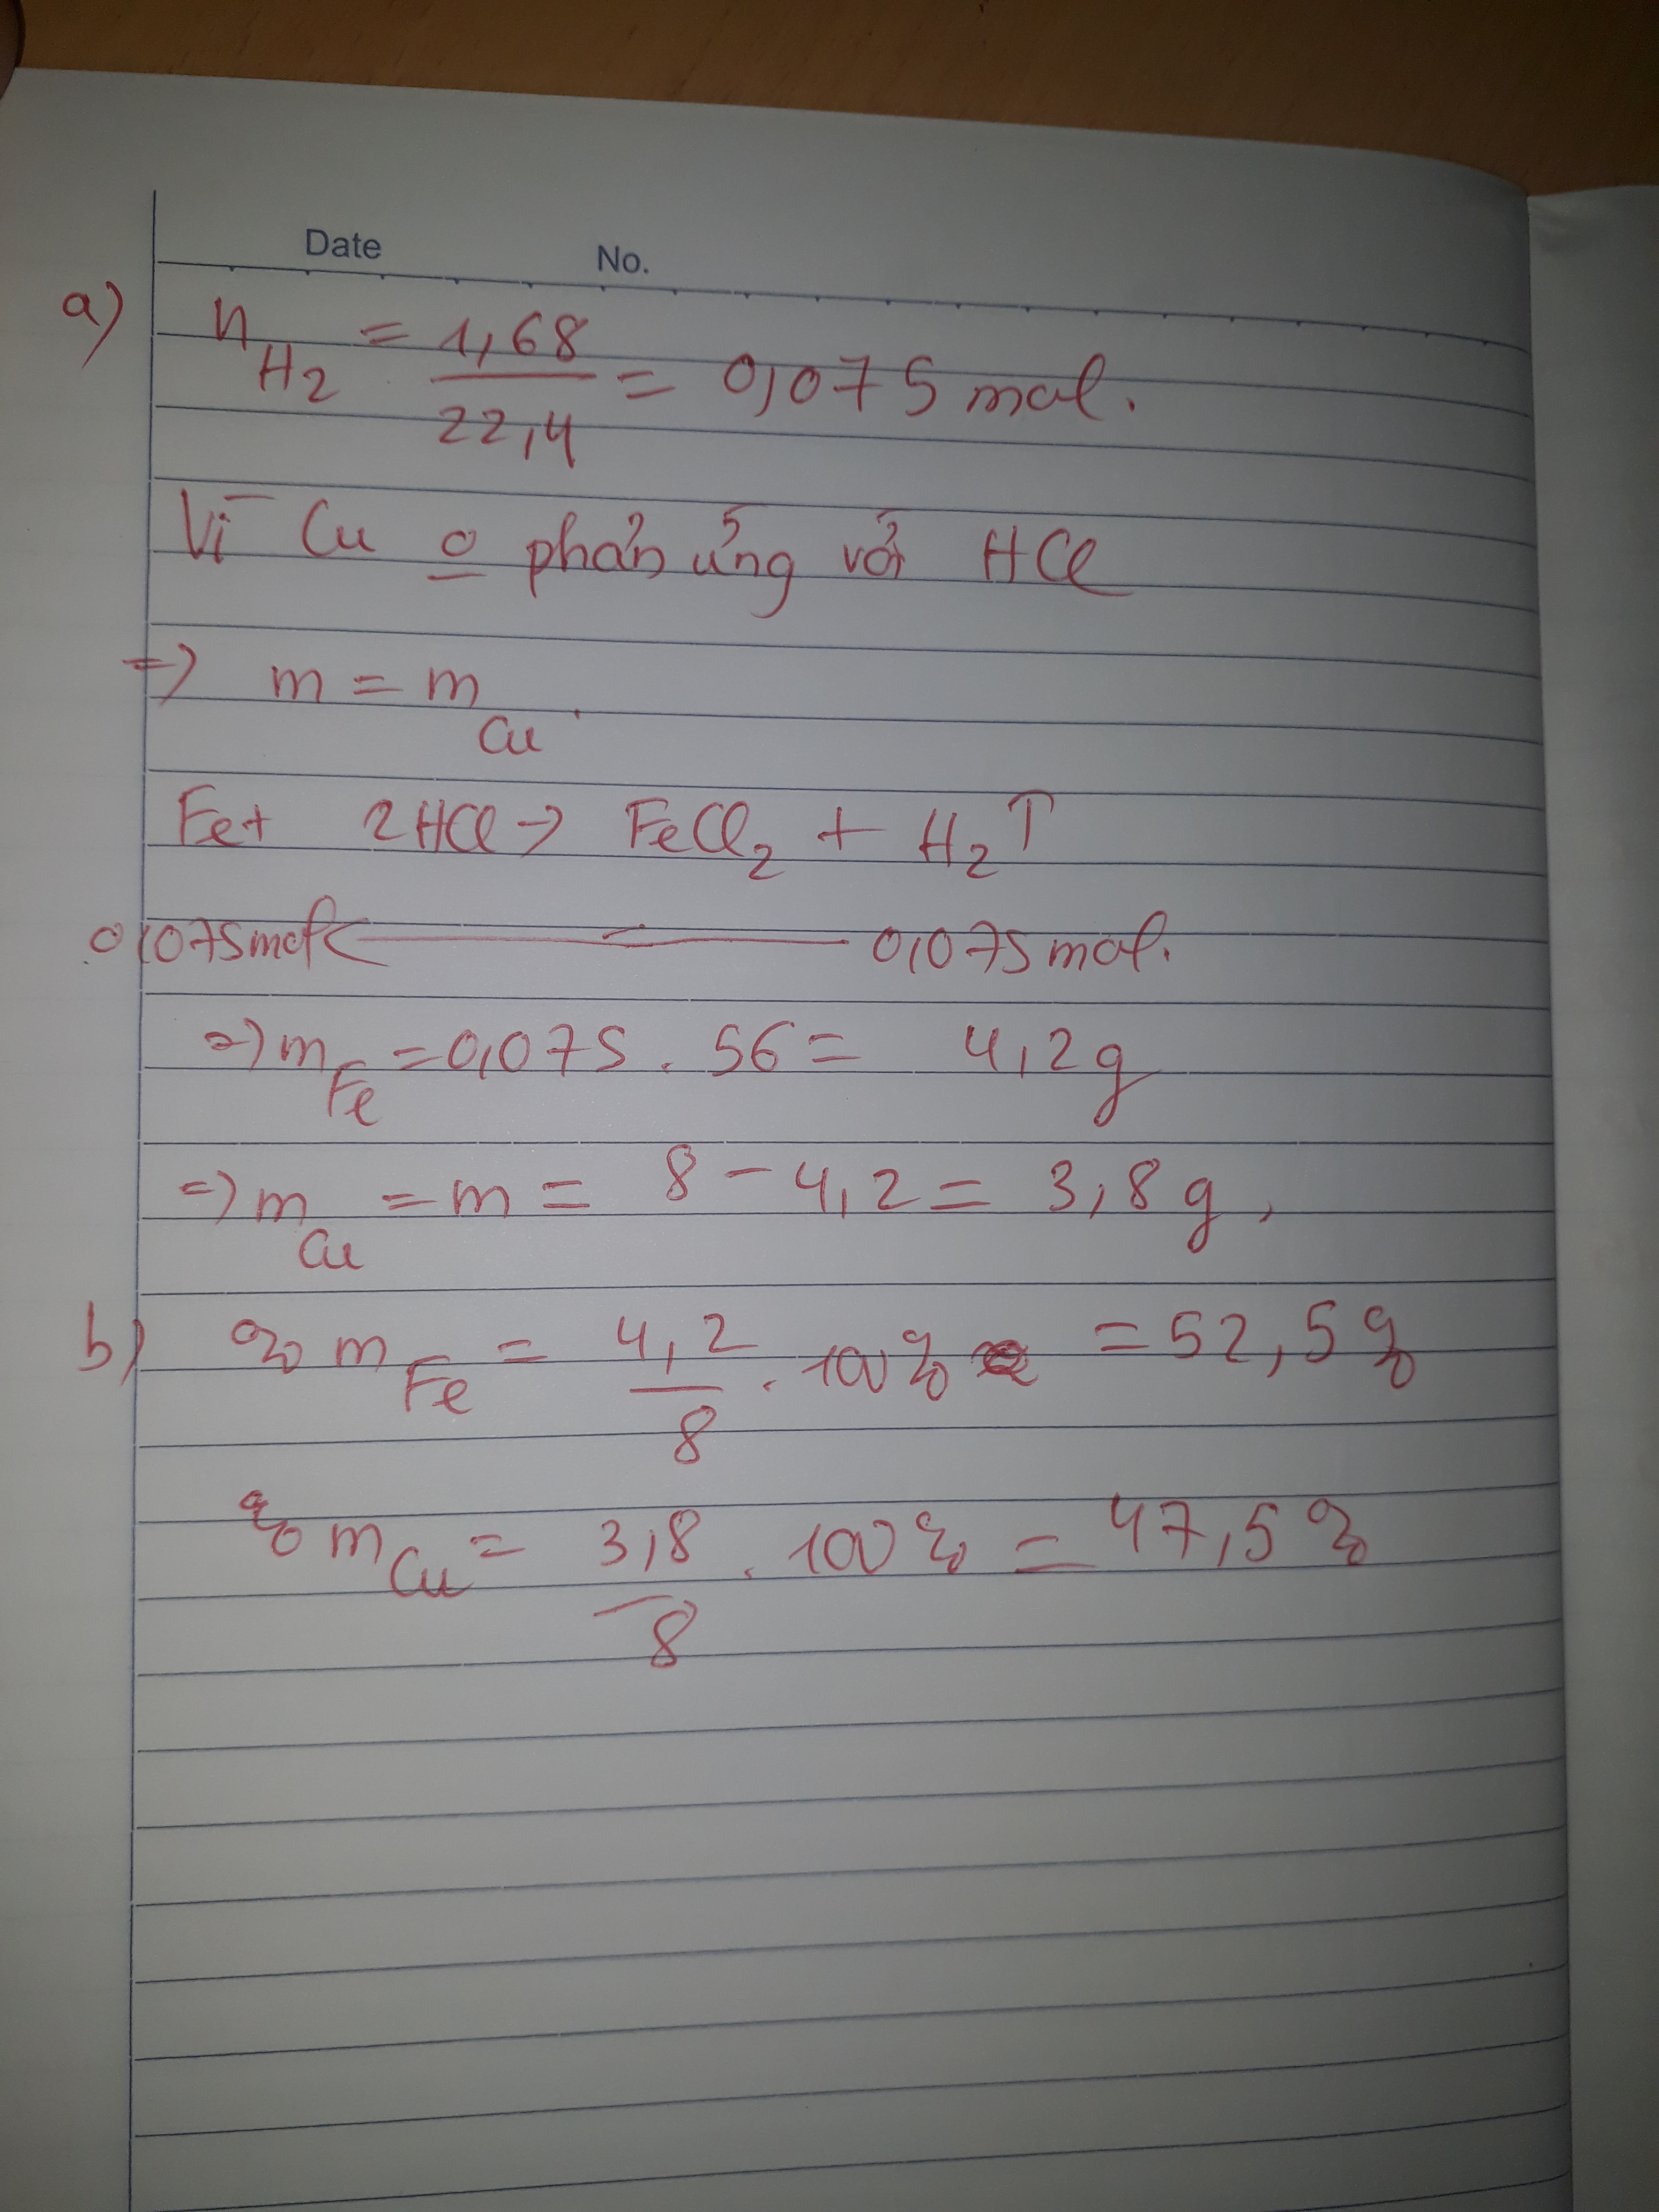 Date No.
a) n H2 = 1,68 / 22,4 = 0,075 mol.
Vì Cu o phản ứng với HCl
=> m = m Cu.
Fe + 2HCl -> FeCl2 + H2 ↑
0,075mol <— 0,075 mol.
=> m Fe = 0,075 . 56 = 4,2g
=> m Cu = m = 8 - 4,2 = 3,8 g,
b) % m Fe = 4,2 / 8 . 100% = 52,5%
% m Cu = 3,8 / 8 . 100% = 47,5%